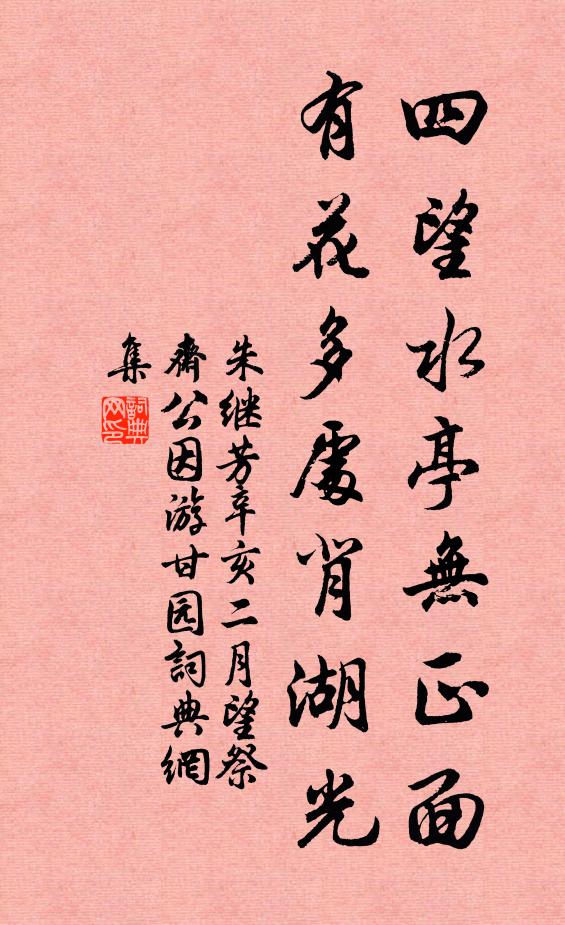 四望水亭無正面
有花多處背湖光
朱继芳辛亥二月望祭
齋公因游甘园詞典網
集
詞典
网印